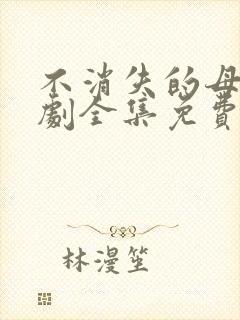 不消失的母
劇全集免費
林漫笙